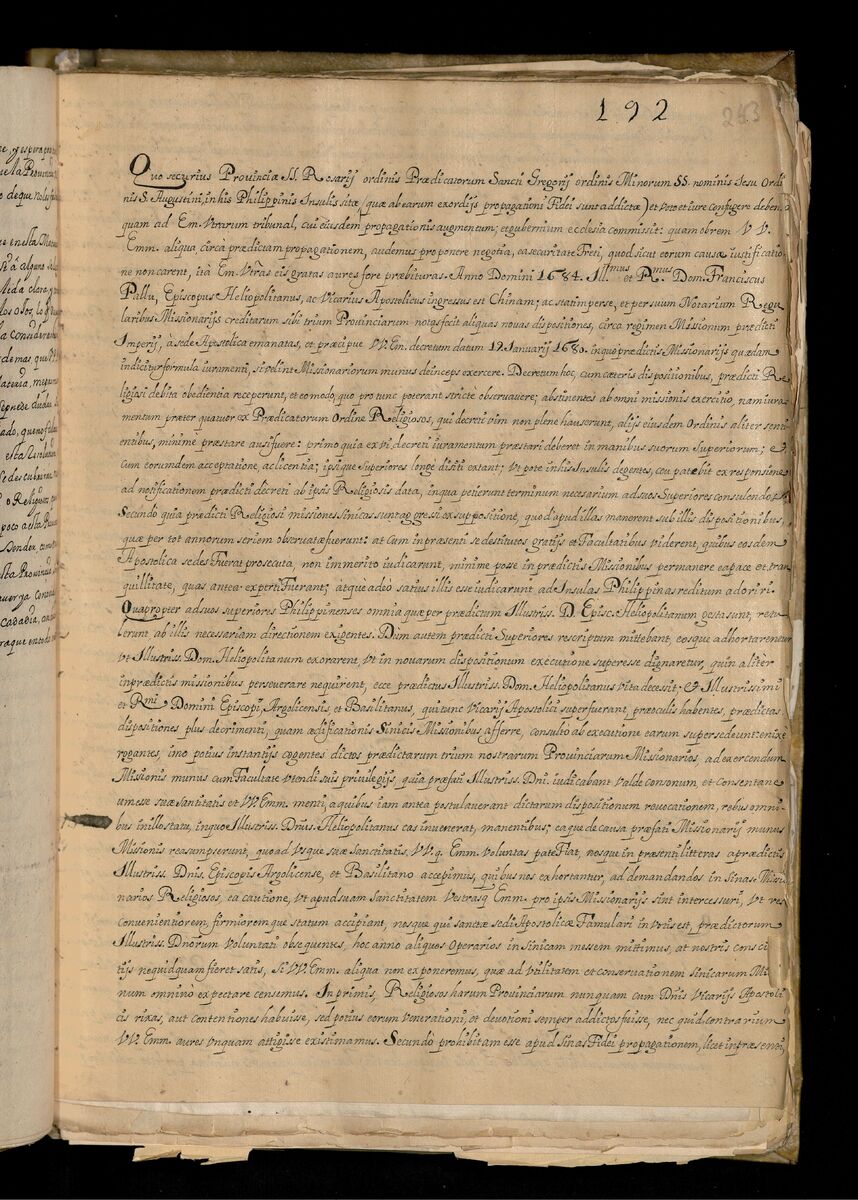 192
243
Quo securius Provinciæ SS. Rosarij ordinis Prædicatorum Sancti Gregorij ordinis Minorum SS. nominis Iesu Ordi
nis S. Augustini, in his Philippinis Insulis sitæ (quæ ab earum exordijs propagationi Fidei sunt addictæ) et voto et iure confugere deben
quam ad Em. Vrarum tribunal, cui eiusdem propagationis augmentum; et gubernium ecclesia commissit: quam obrem VV.
Emm. aliqua circa prædictam propagationem, audemus proponere negotia, ea securitate Freti, quod sicut eorum causa iustificatio
ne non carent, ità Em. Vtras eis gratas aures fore præbituras. Anno Domini 1684. Ill.mus et R.mus Dom. Franciscus
Pallu, Episcopus Heliopolitanus, ac Vicarius Apostolicus ingressus est Chinam; ac statim per se, et per suum Notarium Regu
laribus Missionarijs creditarum sibi trium Provinciarum notas fecit aliquas nouas dispositiones, circa regimen Missionum prædicti
Imperij, a sede Apostolica emanatas, et præcipue VV. En. decretum datum 12 Ianuarij 1680. in quo prædictis Missionarijs quædan
indicitur formula iuramenti, si velint Missionariorum munus deinceps exercere. Decretum hoc, cum cæteris dispositionibus, prædicti Re
ligiosi debita obedientia receperunt, et eo modo, quo pro tunc poterant stricte observauere; abstinentes ab omni missionis exercitio, nam iura
mentum præter quatuor ex Prædicatorum Ordine Religiosos, qui decreti vim non plene hauserunt, alijs eiusdem Ordinis aliter senti
entibus, minime præstare ausi fuere: primo quia ex vi decreti iuramentum præstari deberet in manibus suorum Superiorum; et
cum eorumdem acceptatione, ac licentia; ipsi que Superiores longe disiti extant; vt pote in his Insulis degentes, ceu patebit ex responsione
ad notificationem prædicti decreti ab ipsis Religiosis data, in qua petierunt terminum necesarium ad suos Superiores consulendos
Secundo quia prædicti Religiosi missiones sinicas sunt aggressi ex suppositione, quod apud illas manerent sub illis dispositionibus,
quæ per tot annorum seriem observatæ fuerunt: at cum in præsenti se destitutos gratijs et Facultatibus viderent, quibus eosdem
Apostolica sedes Fuerat prosecuta, non immerito iudicarunt, minime posse in prædictis Missionibus permanere ea pace et tran
quillitate, quas antea experti Fuerant; atque adeò satius illis esse iudicarunt, ad Insulas Philippinas reditum adoriri.
Quapropter ad suos superiores Philippinenses omnia quæ per prædictum Illustriss. D. Episc. Heliopolitanum gesta sunt, retu
lerunt ab illis necessariam directionem exigentes. Dum autem prædicti Superiores rescriptum mittebant, eosque adhortarentur
vt Illustriss. Dom. Heliopolitanum exorarent, vt in novarum dispositionum executione superesse dignaretur, quin aliter
in prædictis missionibus perseverare nequirent, ecce prædictus Illustriss. Dom. Heliopolitanus vita decessit; et Illustrissimi
et Rmi Domini Episcopi, Argolicensis, et Basilitanus, qui tunc Vicarij Apostolici superfuerant, præ oculis habentes, prædictas
dispositiones plus detrimenti, quam ædificationis Sinicis Missionibus afferre, consulto ab executione earum supersedeunt: enixe
rogantes, imo potius instantijs cogentes dictos prædictarum trium nostrarum Provinciarum Missionarios, ad exercendum
Missionis munus cum Facultate vtendi suis priuilegijs, quia præfati Illustriss. Dni. iudicabant valde consonum, et consentane
um esse suæ Santitatis et VV. Emm. menti, a quibus iam antea postulauerant dictarum dispositionum revocationem, rebus omni-
bus in illo statu, in quo Illustriss. Dñus. Heliopolitanus eas invenerat, manentibus; ea que de causa præfati Missionarij munus
Missionis reasumpserunt, quoad vsque suæ Sanctitatis. VV.q. Emm. voluntas pateFiat, nosque in præsenti litteras a prædictis
Illustriss. Dnis. Episcopis Argolicense, et Basilitano accepimus, quibus nos exhortantur, ad demandandos in Sinas. Missi
narios Religiosos, ea cautione, vt apud suam Sanctitatem Vestrasq Emm. pro ipsis Missionarijs sint intercessuri, vt res
convenientiorem, firmiorem que statum accipiant, nosque qui sanctæ sedi Apostolicæ Famulari in votis est, prædictorum
Illustriss. Dnorum voluntati obsequentes, hoc anno aliquos Operarios in sinicam messem mittimus, at nostris consci
tijs nequidquam fieret satis, si VV. Emm. aliqua non exponeremus, quæ ad vtilitatem et conservationem sinicarum Mi
num omninò expectare censumus. In primis, Religiosos harum Provinciarum nunquam cum Dñis Vicarijs Apostoli
cis rixas, aut contentiones habuisse, sed potius eorum venerationi, et devotioni semper addictos fuisse, nec quid contrarium
VV. Emm. aures vnquam attigisse existimamus. Secundò prohibitam esse apud sinas Fidei propagationem, licet in præsenti,